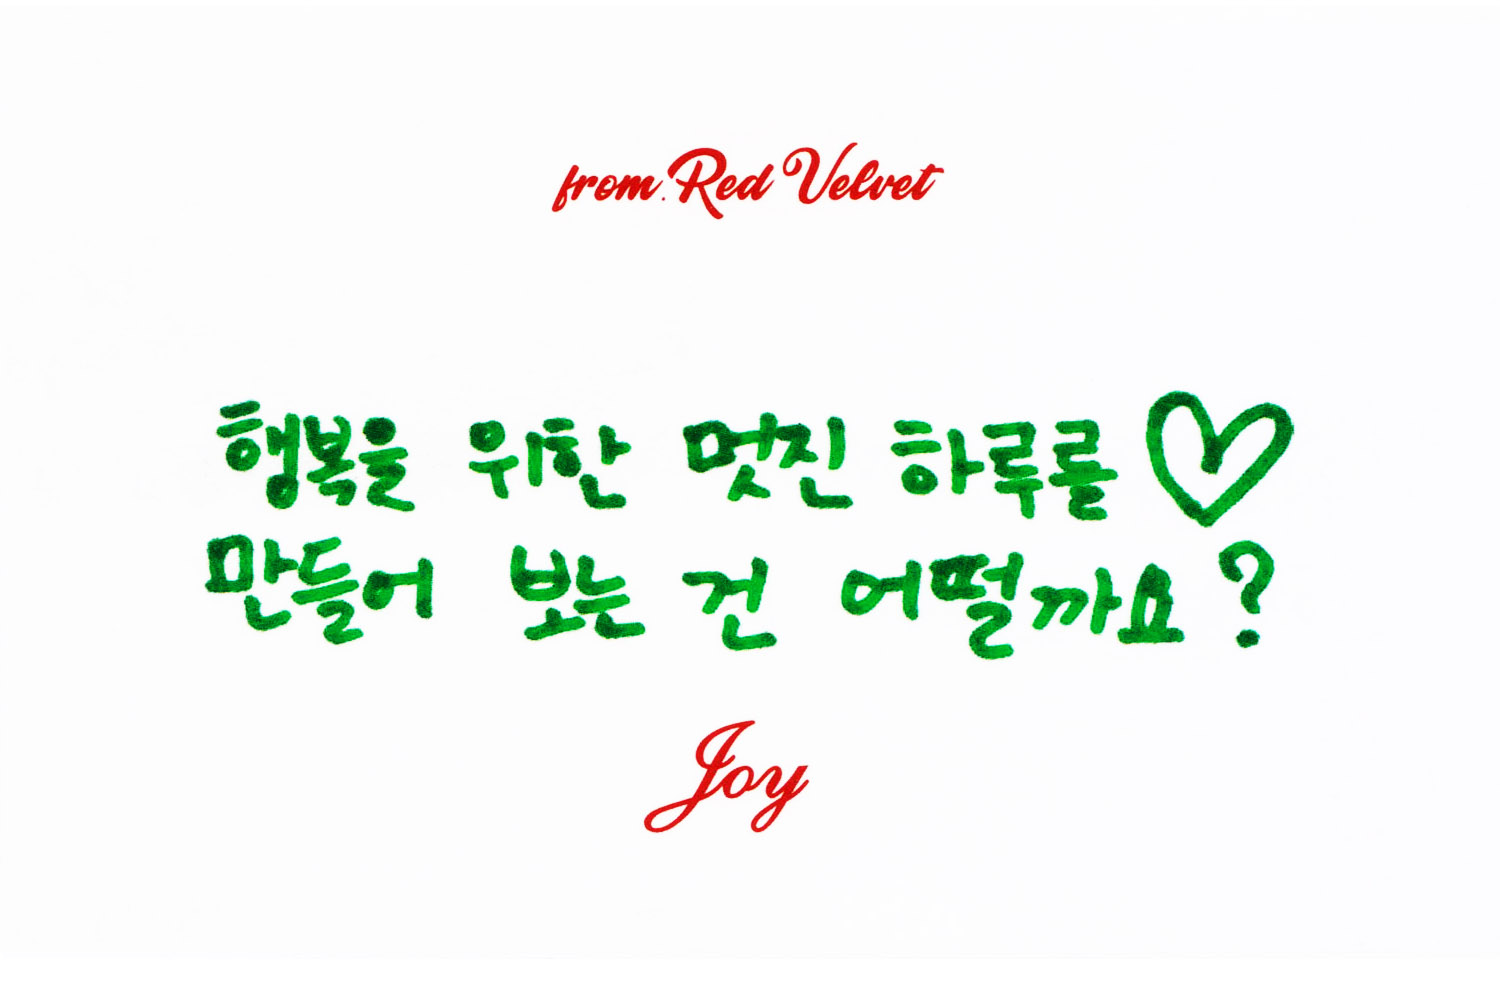 from. Red Velvet
행복을 위한 멋진 하루를 ♡
만들어 보는 건 어떨까요?
Joy